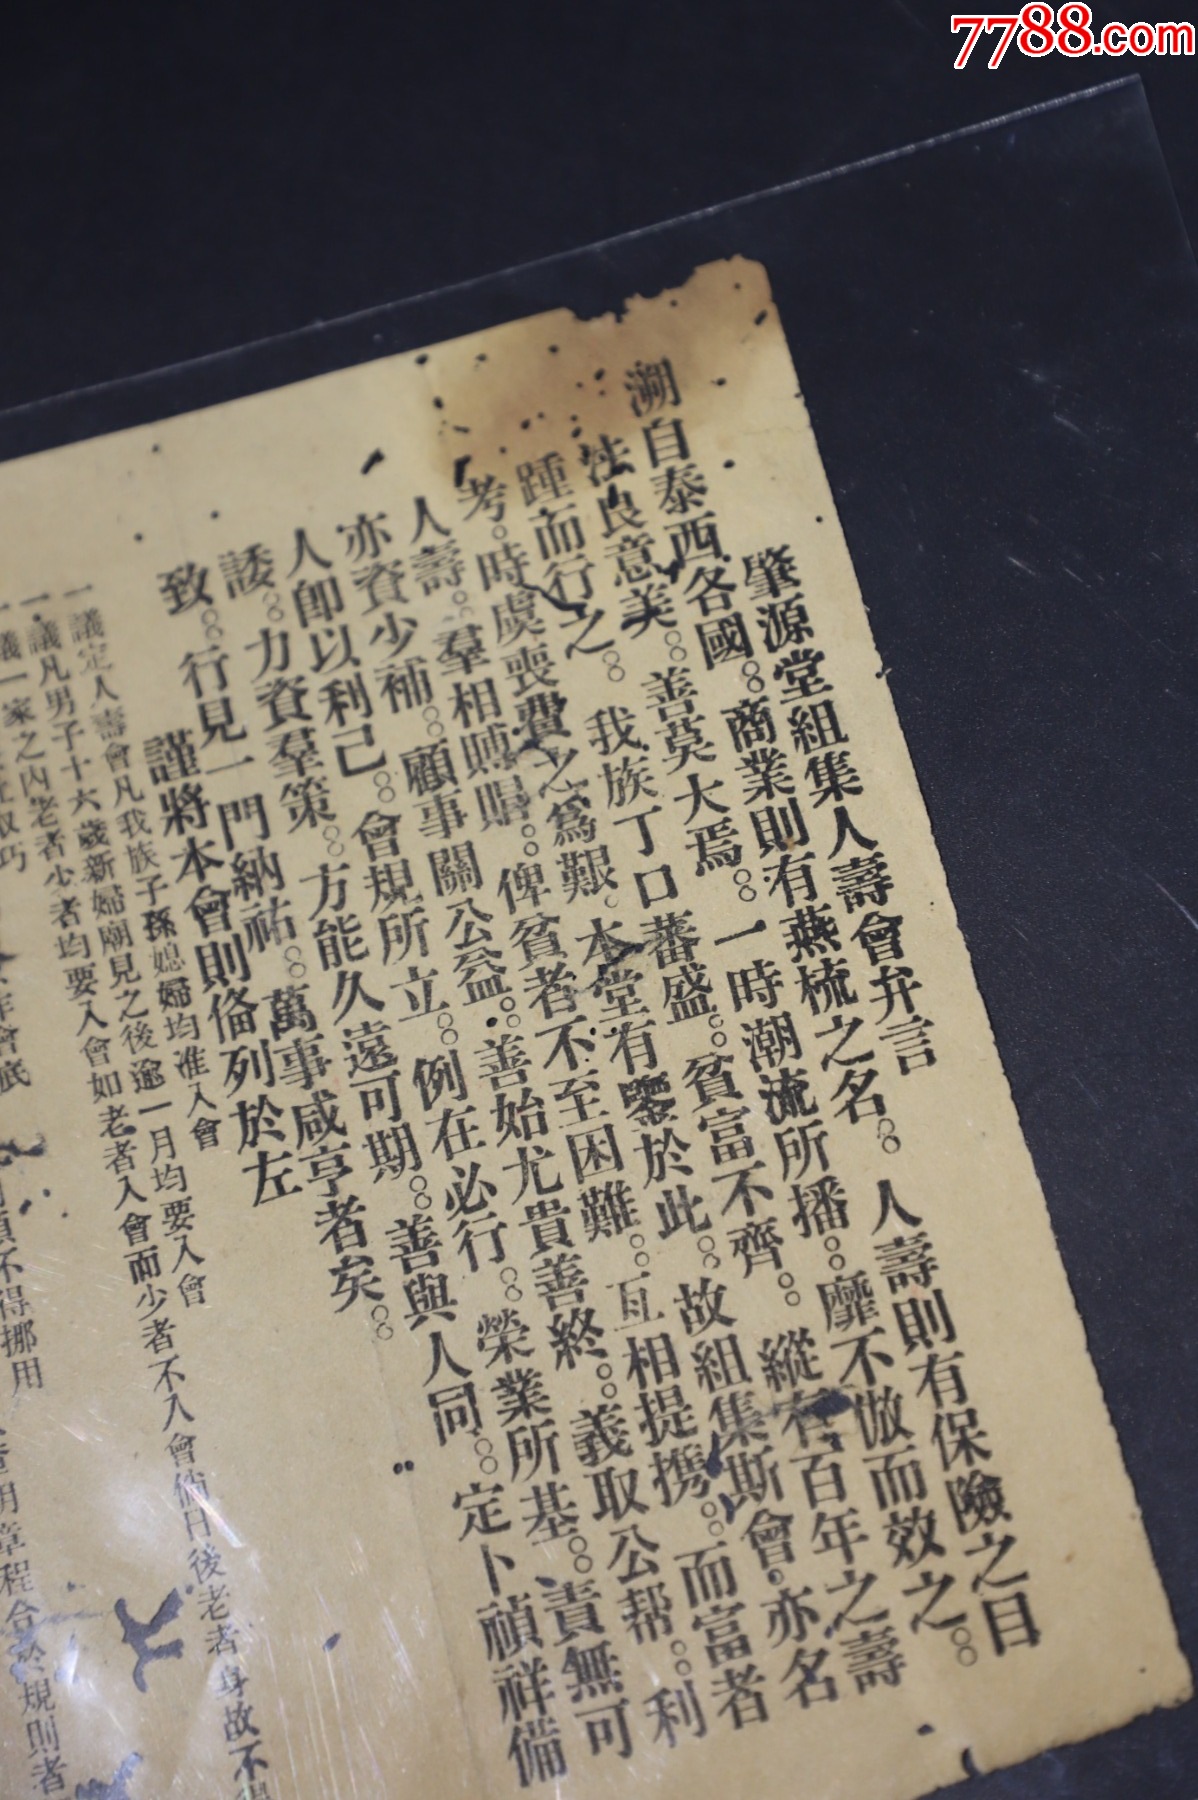 7788.com
肇源堂組集人壽會弁言
溯自泰西各國。商業則有燕梳之名。人壽則有保險之目
法良意美。善莫大焉。一時潮流所播。靡不倣而效之。
踵而行之。我族丁口蕃盛。貧富不齊。縱有百年之壽
考。時虞喪費之爲艱。本堂有鑒於此。故組集斯會。亦名
人壽。羣相賻賵。俾貧者不至困難。互相提携。而富者
亦資少補。顧事關公益。善始尤貴善終。義取公幇。利
人即以利己。會規所立。例在必行。榮業所基。責無可
諉。力資羣策。方能久遠可期。善與人同。定卜禎祥備
致。行見一門納祜。萬事咸亨者矣。
謹將本會則俻列於左
一議定人壽會凡我族子孫媳婦均准入會
一議凡男子十六歲新婦廟見之後逾一月均要入會
一議一家之內老者少者均要入會如老者入會而少者不入會倘日後老者身故不得
取巧
作會底
不得挪用
章程合於規則者